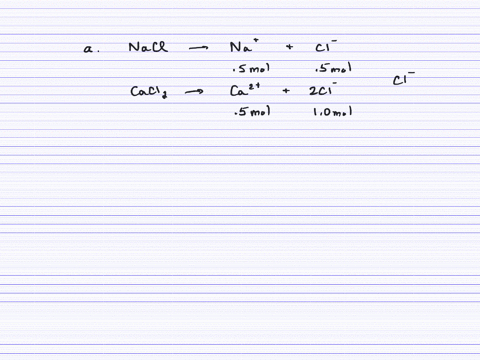 a. NaCl → Na⁺ + Cl⁻
.5 mol .5 mol
Cl⁻
CaCl₂ → Ca²⁺ + 2Cl⁻
.5 mol 1.0 mol